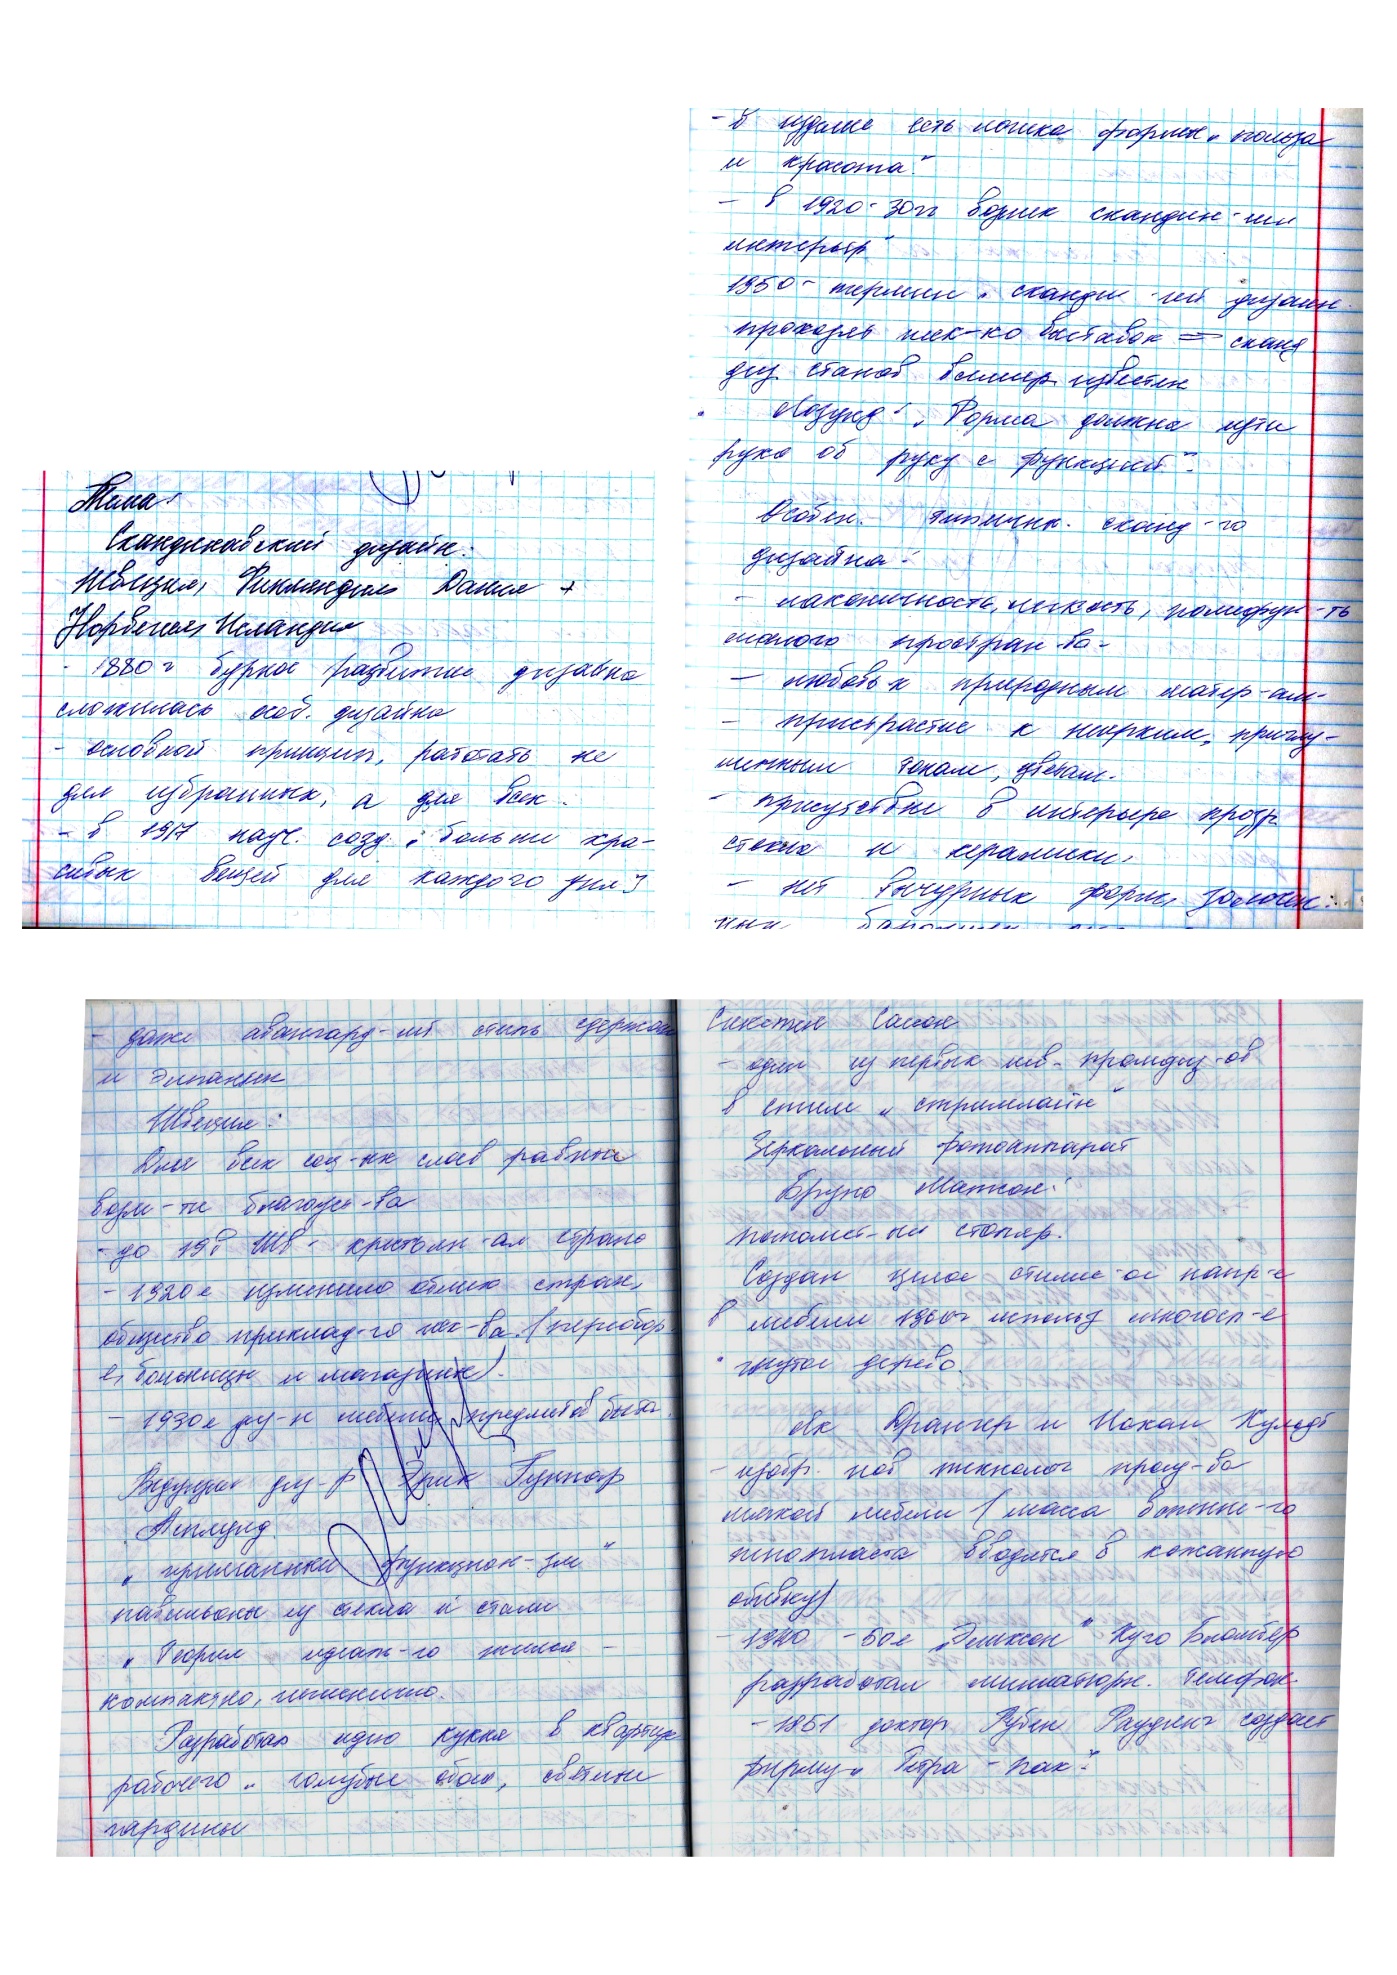 Тема:
Скандинавский дизайн.
Швеция, Финляндия Дания +
Норвегия, Исландия
- 1880г бурное развитие дизайна
сложилась особ. дизайна
- основной принцип, работать не
для избранных, а для всех.
- в 1917 науч. созд. „больше кра-
сивых вещей для каждого дня"
- в изделие есть логика формы, польза
и красота"
- в 1920-30гг возник скандин-ий
интерьер
1950 - термин „сканди-ий дизайн
проходят неск-ко выставок => сканд
диз. станов всемир. известен
Лозунг: „Форма должна идти
рука об руку с функцией".
Особен. типичн. сканд-го
дизайна:
- лаконичность, легкость, полифун-ть
малого простран-ва.
- любовь к природным матер-ам.
- пристрастие к неярким, приглу-
шенным тонам, цветам.
- присутствие в интерьере прозр
стекла и керамики.
- нет вычурных форм, золочен.
- даже авангард-ий стиль сдержан
и элегантен
Швеция:
Для всех соц-ых слоев равные
возм-ти благоус-ва
- до 19в Шв - крестьян-ая страна
- 1920е изменило облик стран,
общество приклад-го иск-ва (
больницы и магазины).
- 1930е диз-н мебели, предметов быта.
Ведущий диз-р Эрик Гуннар
Асплунд.
функцион-зм"
павильоны из стекла и стали
„Теория идеал-го жилья -
компактно, гигиенично.
Разработал идею кухня в квартире
рабочего „голубые обои, светлые
гардины
Сикстен Сасон
- один из первых шв. промдиз-ов
в стиле „стримлайн"
Зеркальный фотоаппарат
Бруно Матсон:
столяр.
Создан целое стилис-ое напр-е
в мебели 1960г использ многосл-е
гнутое дерево.
Ове Дрангер и Иохан Хульдт
- изобр. нов технолог произ-ва
мягкой мебели (масса вспенен-го
пенопласта вводится в кожанную
обивку)
- 1940 - 50е „Эриксон" Хуго Бломбер
разработал миниатюрн. Телефон.
- 1951 доктор Рубен Раудинг создает
фирму „Тетра - пак".